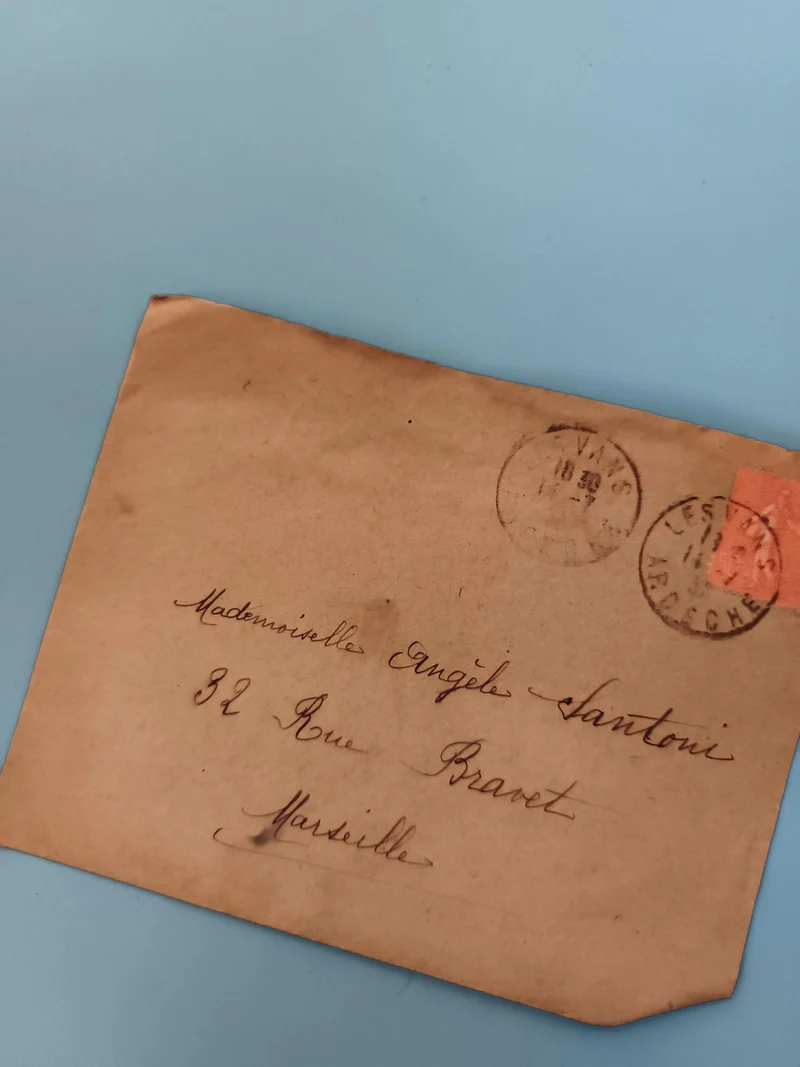 LES VANS
18 30
ARDECHE
LES VANS
ARDECHE
Mademoiselle Angèle Santoni
32 Rue Bravet
Marseille